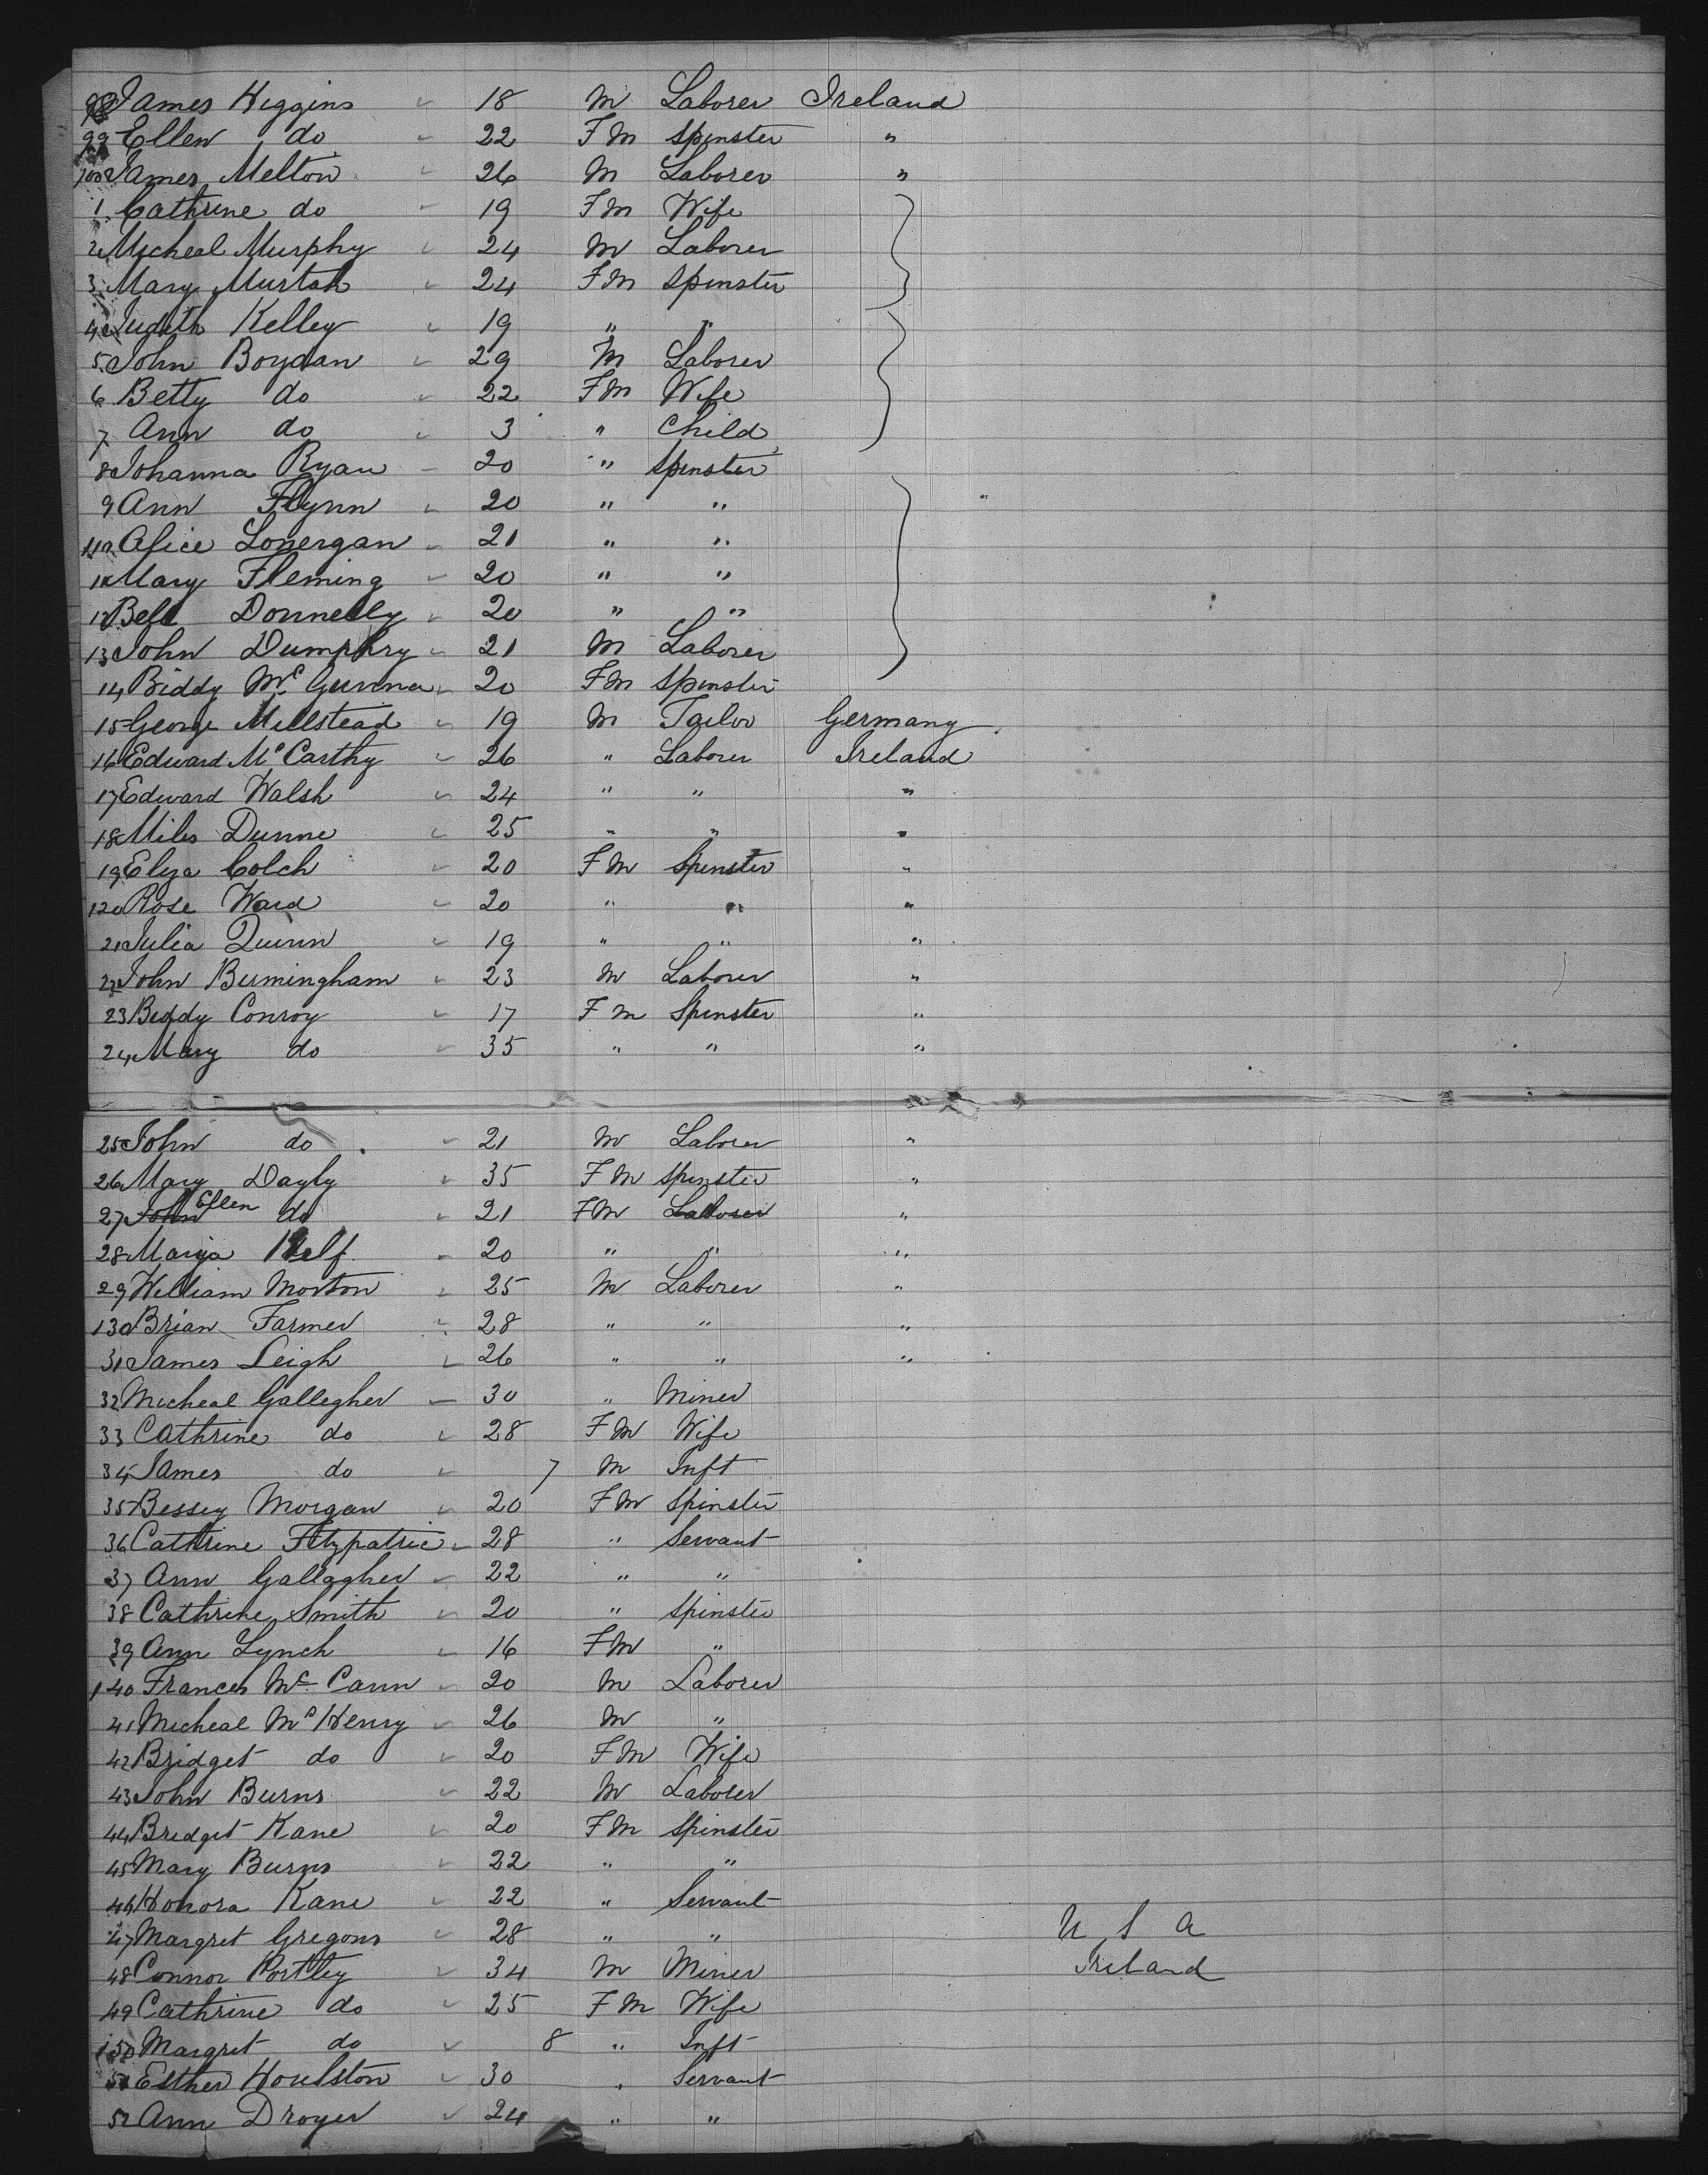 98 James Higgins 18 M Laborer Ireland
99 Ellen do 22 Fm Spinster "
100 James Melton 26 M Laborer "
1 Cathrine do 19 Fm Wife
2 Micheal Murphy 24 M Laborer
3 Mary Murtah 24 Fm Spinster
4 Judith Kelley 19 " "
5 John Boylan 29 M Laborer
6 Betty do 22 Fm Wife
7 Ann do 3 " Child
8 Johanna Ryan 20 " Spinster
9 Ann Flynn 20 " "
110 Alice Lonergan 21 " "
11 Mary Fleming 20 " "
12 Bell Donnelly 20 " "
13 John Dumphry 21 M Laborer
14 Biddy Mc Gunna 20 Fm Spinster
15 George Millstead 19 M Tailor Germany
16 Edward Mc Carthy 26 " Laborer Ireland
17 Edward Walsh 24 " " "
18 Miles Dunne 25 " " "
19 Eliza Colch 20 Fm Spinster "
120 Rose Ward 20 " " "
21 Julia Quinn 19 " " "
22 John Birmingham 23 M Laborer "
23 Biddy Conroy 17 Fm Spinster "
24 Mary do 35 " " "
25 John do 21 M Laborer "
26 Mary Dayly 35 Fm Spinster "
27 John Ellen do 21 Fm Laborer "
28 Maria 20 " " "
29 William Morton 25 M Laborer "
130 Brian Farmer 28 " " "
31 James Leigh 26 " " "
32 Micheal Gallegher 30 " Miner
33 Cathrine do 28 Fm Wife
34 James do 7 M Inft
35 Bessey Morgan 20 Fm Spinster
36 Cathrine Fitzpatric 28 " Servant
37 Ann Gallagher 22 " "
38 Cathrine Smith 20 " Spinster
39 Ann Lynch 16 Fm "
140 Frances Mc Cann 20 M Laborer
41 Micheal Mc Henry 26 M "
42 Bridget do 20 Fm Wife
43 John Burns 22 M Laborer
44 Bridget Kane 20 Fm Spinster
45 Mary Burns 22 " "
46 Honora Kane 22 " Servant
47 Margret Gregons 28 " " U S A
48 Connor Portley 34 M Miner Ireland
49 Cathrine do 25 Fm Wife
150 Margret do 8 " Inft
51 Esther Houlston 30 " Servant
52 Ann Droyer 24 " "